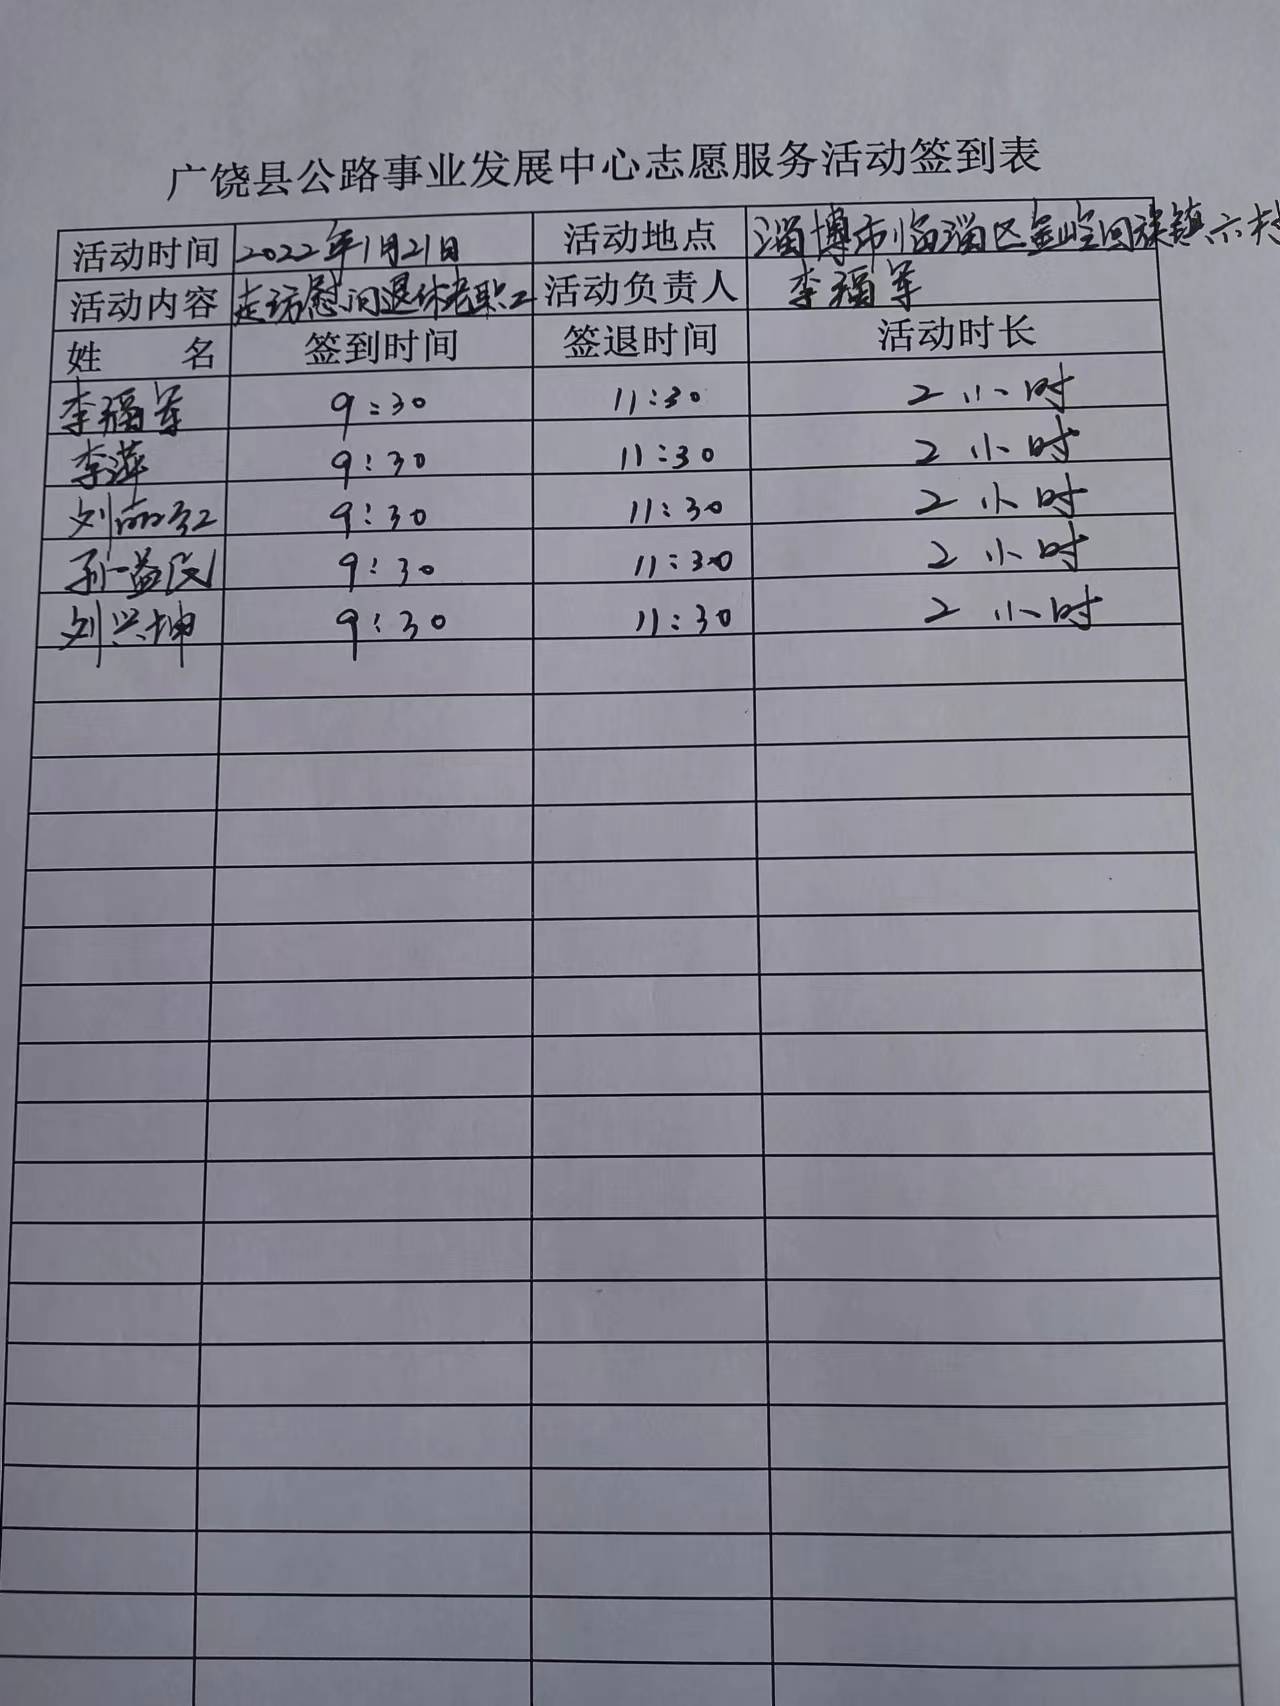 广饶县公路事业发展中心志愿服务活动签到表
活动时间 2022年1月21日 活动地点 淄博市临淄区金岭回族镇六村
活动内容 走访慰问退休老职工 活动负责人 李福军
姓 名 签到时间 签退时间 活动时长
李福军 9:30 11:30 2小时
李萍 9:30 11:30 2小时
刘 9:30 11:30 2小时
孙益民 9:30 11:30 2小时
刘兴坤 9:30 11:30 2小时